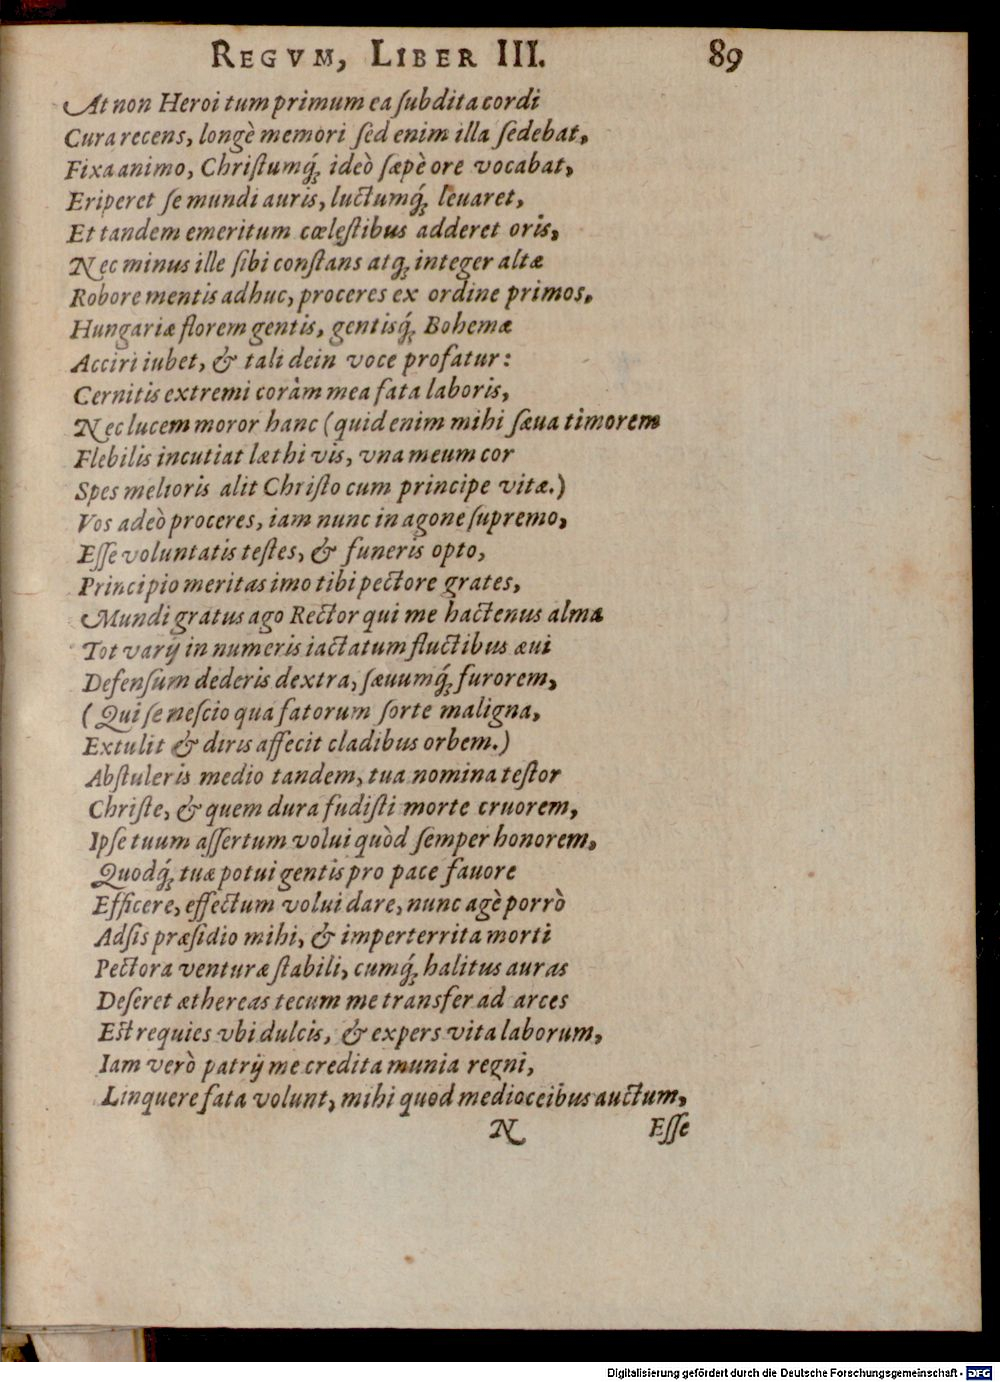 REGVM, LIBER III. 89
At non Heroi tum primum ea ſubdita cordi
Cura recens, longè memori ſed enim illa ſedebat,
Fixa animo, Chriſtumq́; ideò ſæpè ore vocabat,
Eriperet ſe mundi auris, luctumq́; leuaret,
Et tandem emeritum cœleſtibus adderet oris,
Nec minus ille ſibi conſtans atq; integer altæ
Robore mentis adhuc, proceres ex ordine primos,
Hungariæ florem gentis, gentisq́; Bohemæ
Acciri iubet, & tali dein voce profatur:
Cernitis extremi coràm mea fata laboris,
Nec lucem moror hanc (quid enim mihi ſæua timorem
Flebilis incutiat læthi vis, vna meum cor
Spes melioris alit Chriſto cum principe vitæ.)
Vos adeò proceres, iam nunc in agone ſupremo,
Eſſe voluntatis teſtes, & funeris opto,
Principio meritas imo tibi pectore grates,
Mundi gratus ago Rector qui me hactenus alma
Tot varij in numeris iactatum fluctibus æui
Defenſum dederis dextra, ſæuumq́; furorem,
(Qui ſe neſcio qua fatorum ſorte maligna,
Extulit & diris affecit cladibus orbem.)
Abſtuleris medio tandem, tua nomina teſtor
Chriſte, & quem dura fudiſti morte cruorem,
Ipſe tuum aſſertum volui quòd ſemper honorem,
Quodq́; tuæ potui gentis pro pace fauore
Efficere, effectum volui dare, nunc agè porrò
Adſis præſidio mihi, & imperterrita morti
Pectora venturæ ſtabili, cumq́; halitus auras
Deſeret æthereas tecum me transfer ad arces
Eſt requies vbi dulcis, & expers vita laborum,
Iam verò patrij me credita munia regni,
Linquere fata volunt, mihi quod medioceibus auctum,
N Eſſe
Digitalisierung gefördert durch die Deutsche Forschungsgemeinschaft - DFG